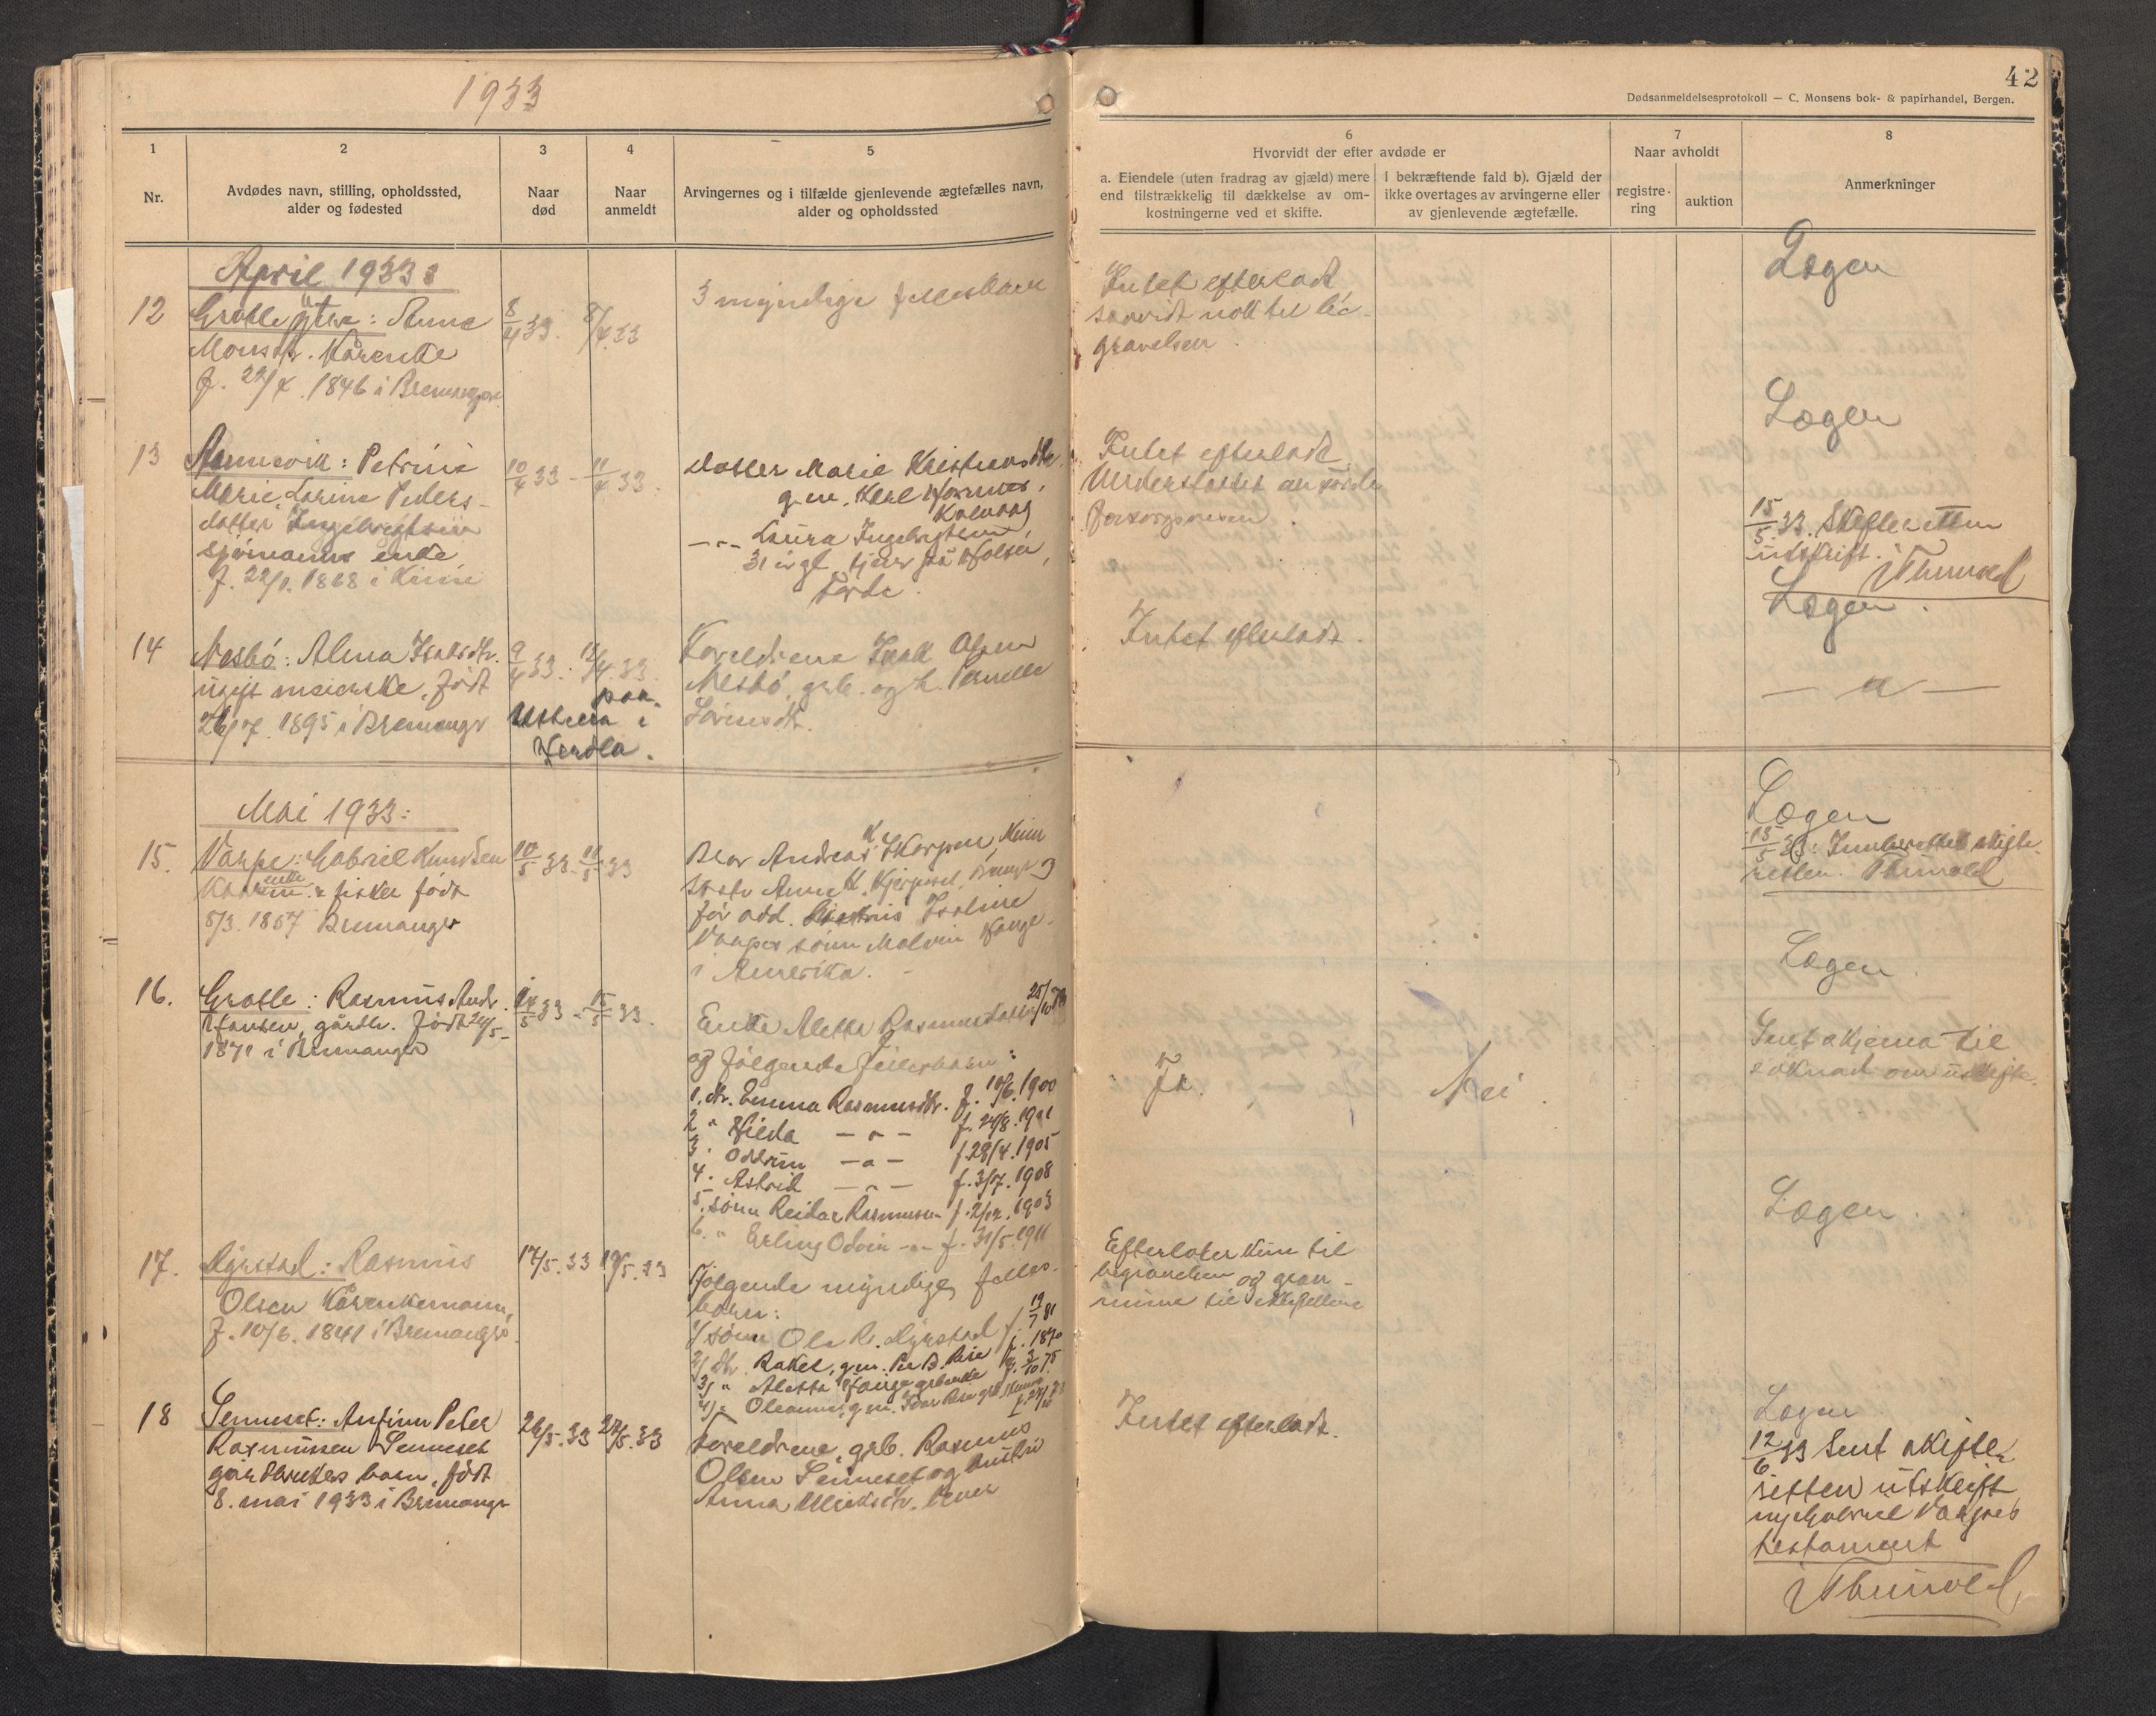 1933
42
Dødsanmeldelsesprotokoll — C. Monsens bok- & papirhandel, Bergen.
1
Nr.
2
Avdødes navn, stilling, opholdssted,
alder og fødested
3
Naar
død
4
Naar
anmeldt
5
Arvingernes og i tilfælde gjenlevende ægtefælles navn,
alder og opholdssted
6
Hvorvidt der efter avdøde er
a. Eiendele (uten fradrag av gjæld) mere
end tilstrækkelig til dækkelse av om-
kostningerne ved et skifte.
I bekræftende fald b). Gjæld der
ikke overtages av arvingerne eller
av gjenlevende ægtefælle.
7
Naar avholdt
registre-
ring
auktion
8
Anmerkninger
April 1933:
12
Grotle ytre: Anne
Monsdtr. Kårenke
f. 1846 i Bremanger
8/4 33. 8/4 33
3 myndige fellesbarn
Intet efterladt
saavidt nokk til be-
gravelsen.
Lægen
13
Petrine
Marie Larine Peders-
datter Ingebrigtsen
sjømanns enke
f. 22/1. 1868 i Kinn
10/4 33 - 11/4 33.
Datter Marie Kristensdtr.
gm. Karl
Kalvaag
—"— Laura Ingebrigtsen
31 år gl. tjener på
Førde.
Intet efterladt
Understøttet av
forsorgsvesen.
Lægen
15/5. 33. Skifteretten
utskrift.
Thunold
14
Nesbø: Alma Isaksdtr.
ugift meierske. født
26/7. 1895 i Bremanger
9/4 33. 12/4 33.
paa
i
Herdla.
Foreldrene Isak Olsen
Nesbø, grb. og h. Pernille
Intet efterladt.
Lægen.
— " —
Mai 1933:
15.
Vaage: Gabriel Knudsen
enke
fisker født
8/3. 1857 Bremanger
10/5 33 - 11/5 33
Bror Andreas K. Skorpen, Kinn
Isoline
sønn Malvin
i Amerika.
Lægen
15/5 33: Innberettet skifte-
retten. Thunold
16.
Grotle: Rasmus Andr.
Hansen, gårdbr. født 24/5-
1871 i Bremanger
14/5 33 - 15/5 33.
Enke Aletta Rasmusdatter
og følgende fellesbarn:
1. dtr. Emma Rasmusdtr. f. 10/6. 1900
2 " Hilda —"— f. 24/8. 1901
3 " Oddrun —"— f. 28/4. 1905
4. " Astrid —"— f. 3/7. 1908
5. sønn Reidar Rasmusen f. 2/12. 1903
6. " Erling Odvin —"— f. 31/5. 1911
Ja.
Nei.
Lægen
Sendt skjema til
søknad om uskifte.
17.
Dyrstad: Rasmus
Olsen Kårenkemann.
f. 10/6. 1841 i Bremanger
17/5. 33 19/5. 33
Følgende myndige felles-
barn:
1/ sønn Ole R. Dyrstad f. 19/7 81
2/ dtr. Rakel, gm. Per B. f. 1870
3/ " Aletta Hauge f. 3/10 75
4/ " Oleanna, gm.
Efterlater kun til
begravelsen og grav-
til
Lægen.
18
Senneset: Arfinn Peter
Rasmussen Senneset
gårdbrukers barn, født
8. mai 1933 i Bremanger
26/5. 33 27/5. 33
Foreldrene, grb. Rasmus
Olsen Senneset og hustru
Anna
Intet efterladt.
Lægen
12/6 33 Sent skifte-
retten utskrift
Gabriel Vaages
testament
Thunold